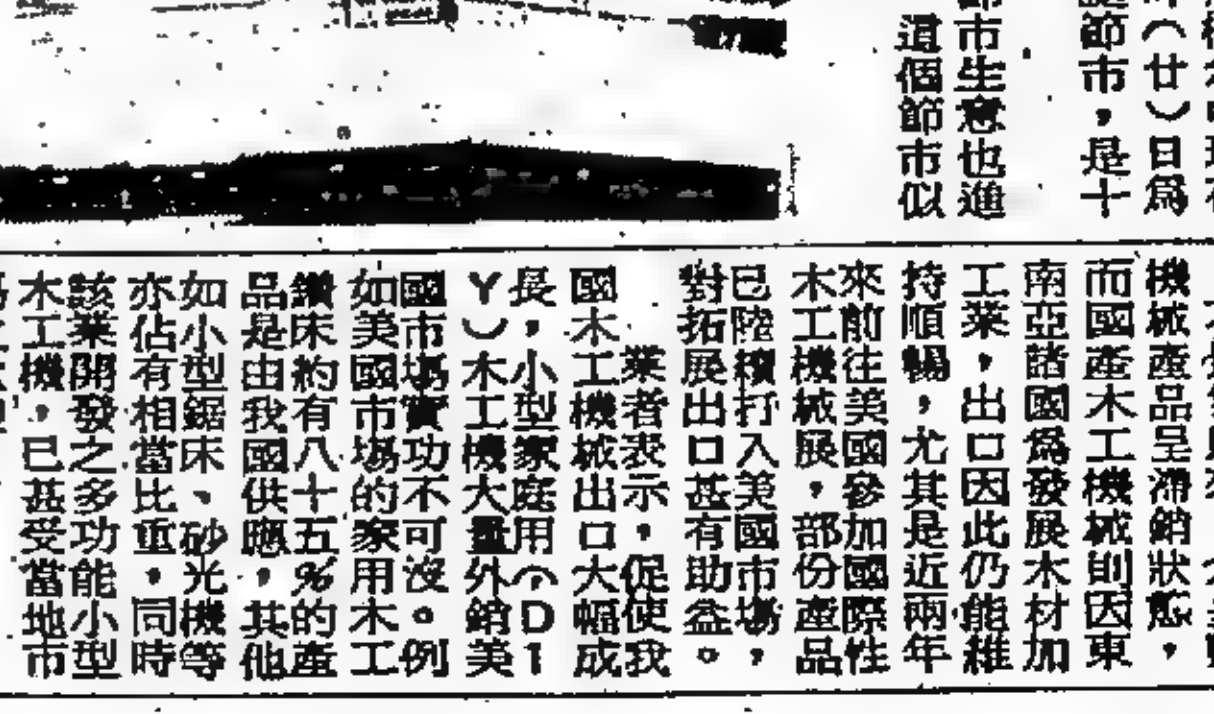 廿）日爲
節市，是十
節市生意也進
這個節市似
機械產品呈滯銷狀態，
而國產木工機械則因東
南亞諸國爲發展木材加
工業，出口因此仍能維
持順暢，尤其是近兩年
來前往美國參加國際性
木工機械展，部份產品
已陸續打入美國市場，
對拓展出口甚有助益。
業者表示，促使我
國木工機械出口大幅成
長，小型家庭用（D1
Y）木工機大量外銷美
國市場實功不可沒。例
如美國市場的家用木工
鑽床約有八十五％的產
品是由我國供應，其他
如小型鋸床、砂光機等
亦佔有相當比重，同時
該業開發之多功能小型
木工機，已甚受當地市